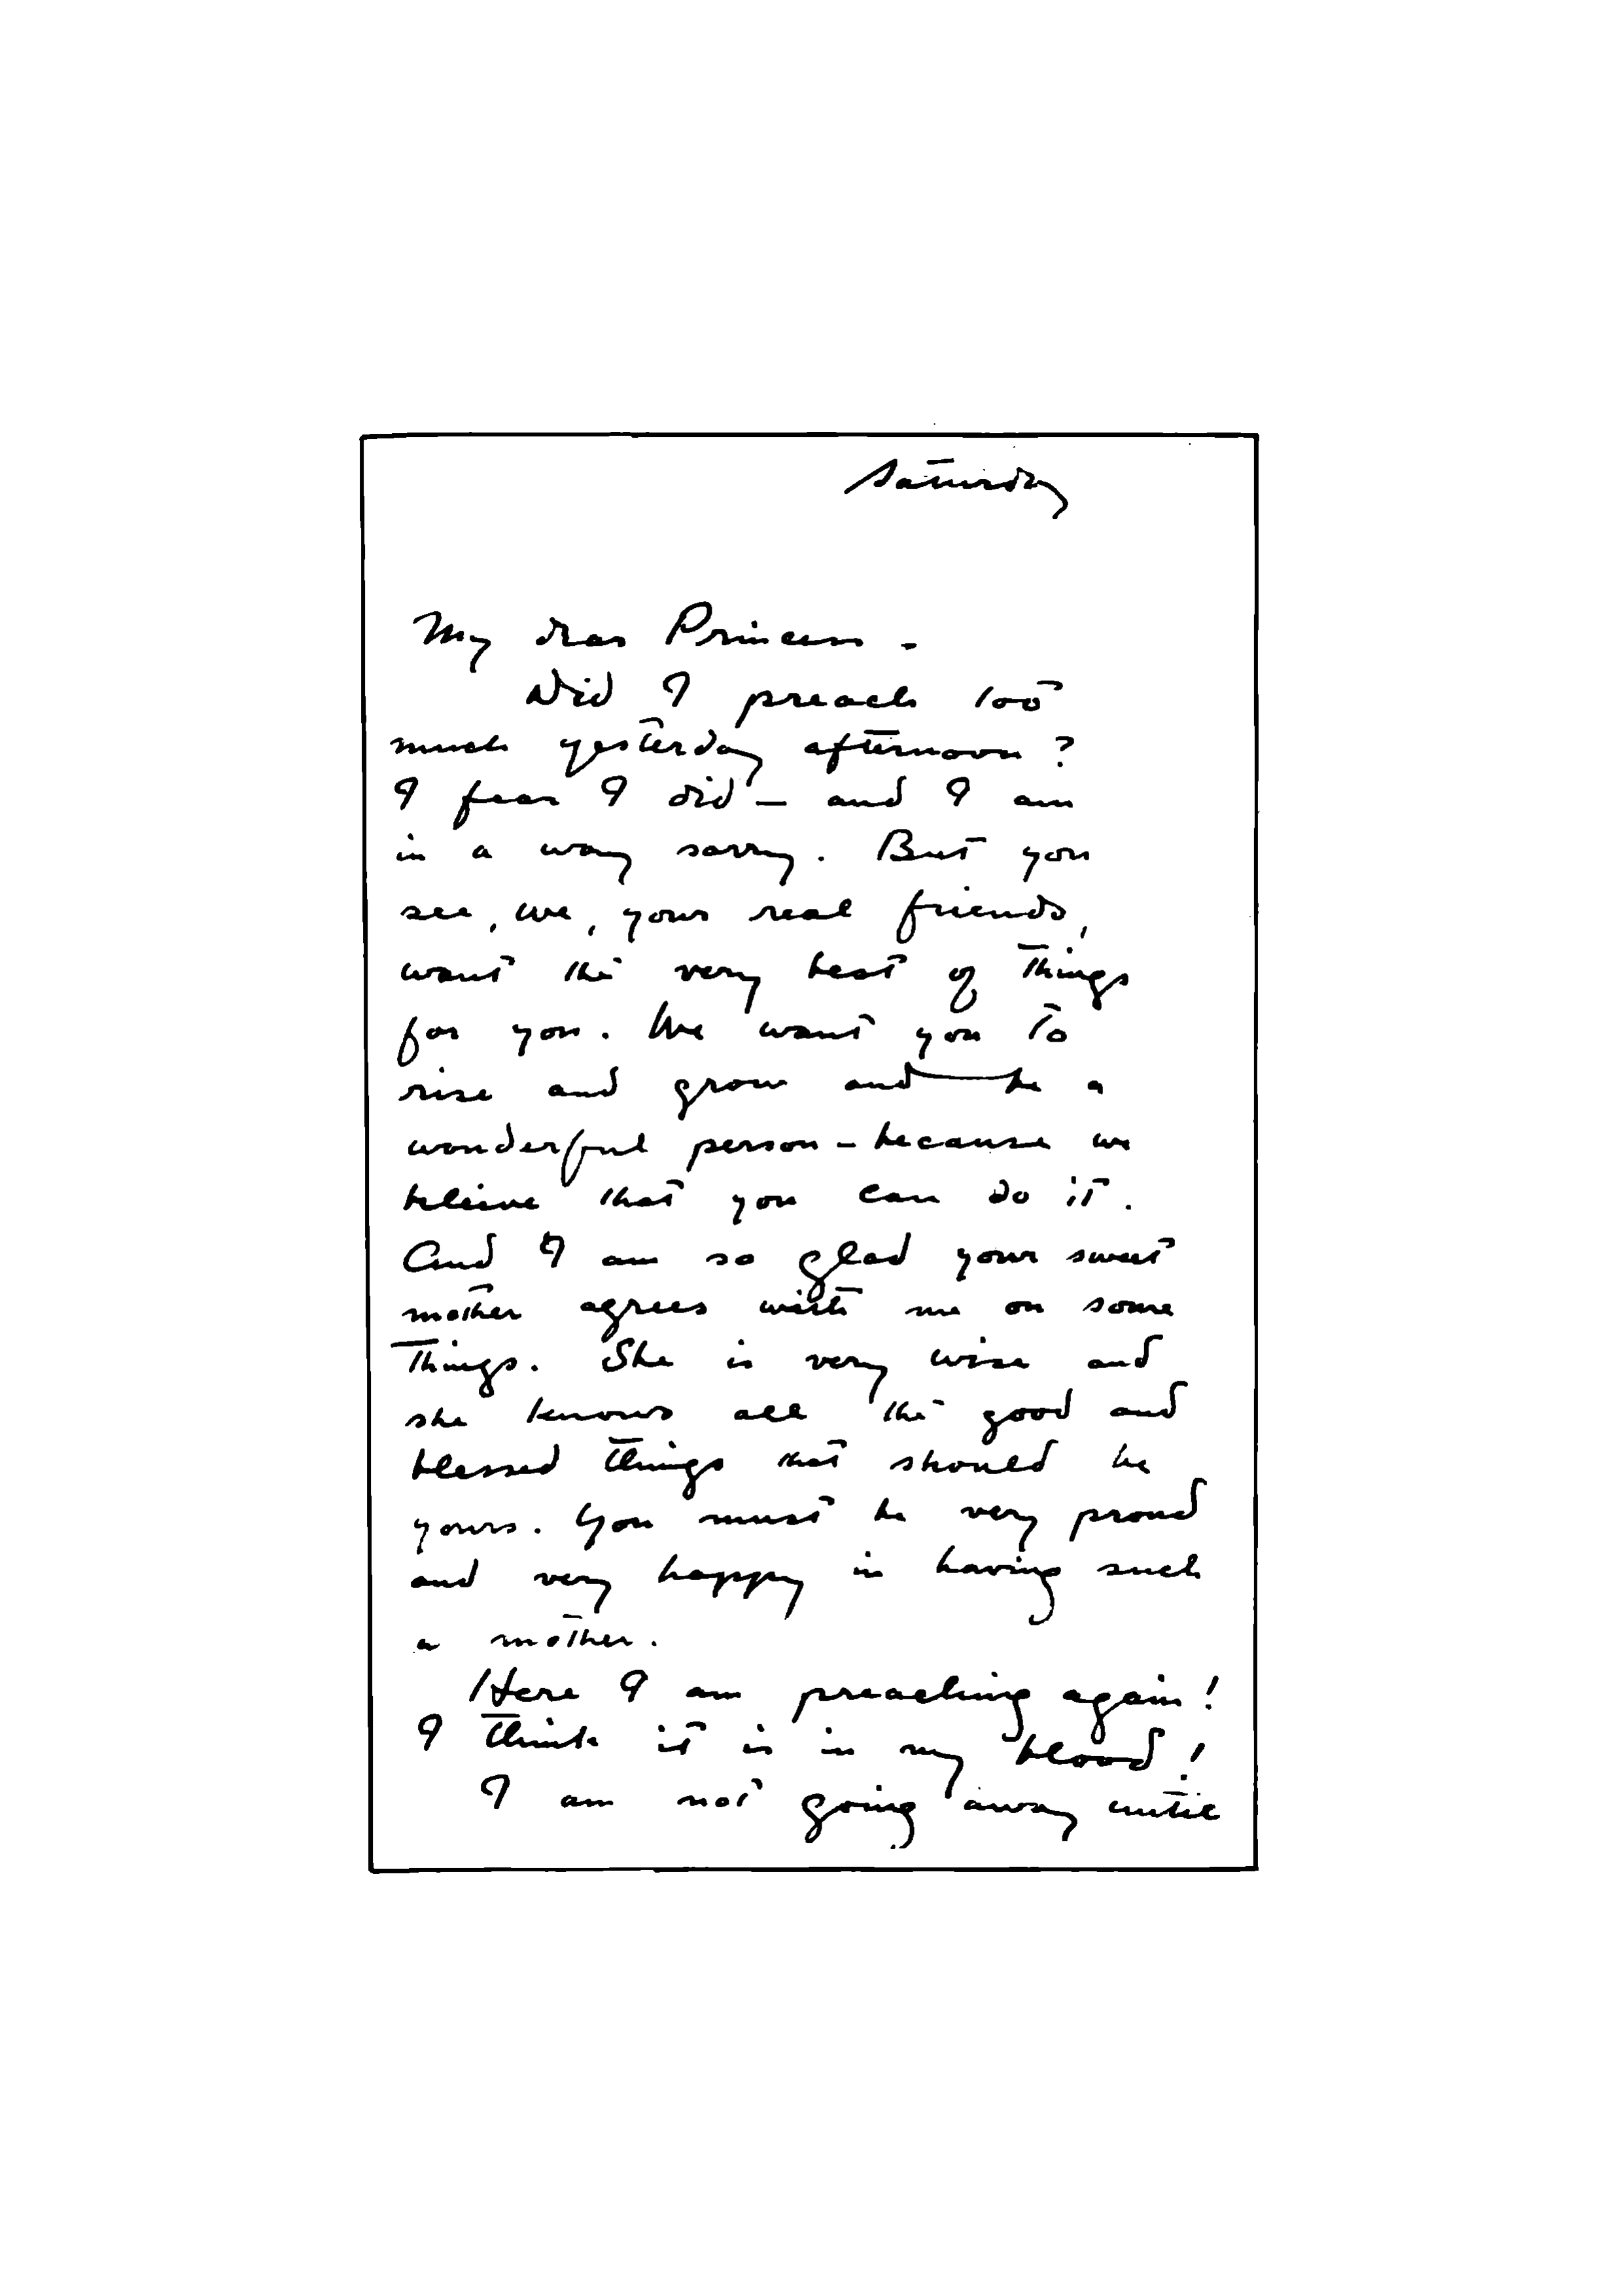 Saturday
My dear Princess -
Did I preach too
much yesterday afternoon?
I fear I did - and I am
in a way sorry. But you
see, we, your real friends,
want the very best of things
for you. We want you to
rise and grow and be a
wonderful person - because we
beleive that you can do it.
And I am so glad your sweet
mother agrees with me on some
things. She is very wise and
she knows all the good and
blessed things that should be
yours. You must be very proud
and very happy in having such
a mother.
Here I am preaching again!
I think it is in my blood!
I am not going away until